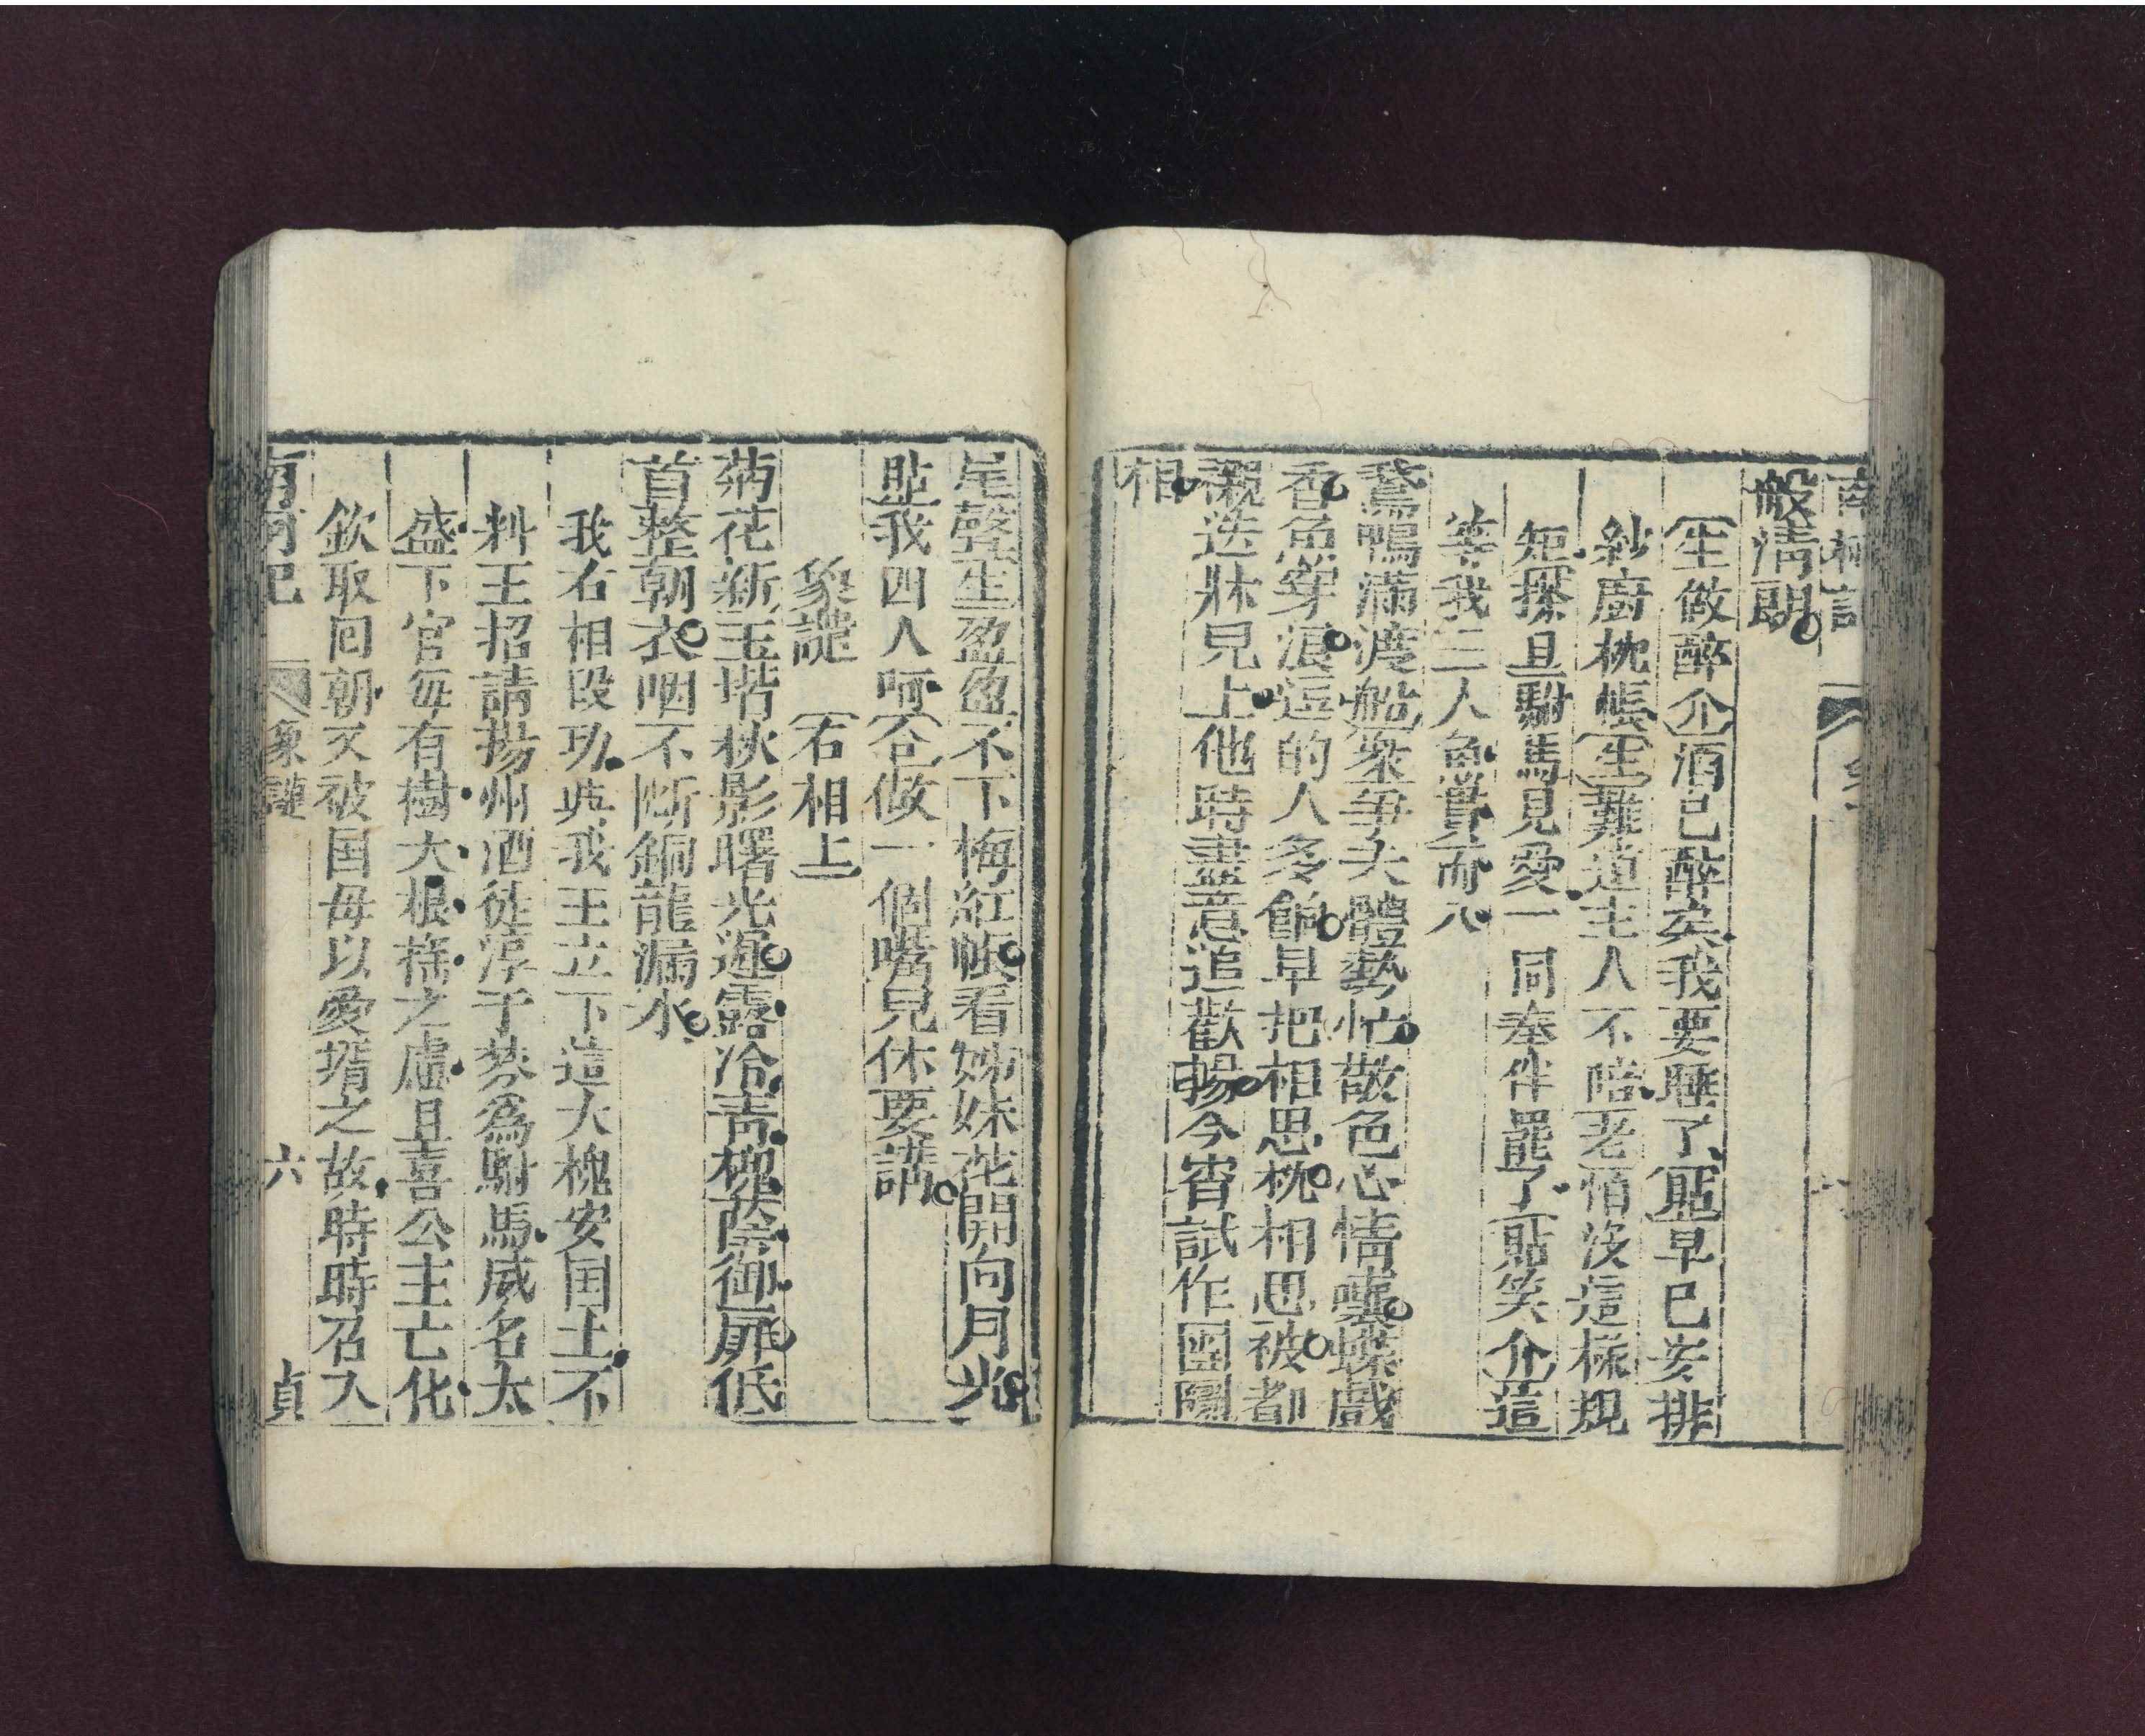 南柯記
般清朗
生做醉介酒已醉矣我要睡了貼早已安排
紗廚枕帳生難道主人不陪老佰没這樣規
矩探旦駙馬見愛一同奉伴罷了貼笑介這
等我三人魚貫而入
鵞鴨滿渡船衆爭大體勢忙散色心情囔蝶戲
香魚穿浪逗的人多餉早把相思枕相思被都
襯迭牀兒上他時盡意追歡暢今宵試作團圞
相
尾聲生盈盈不下梅紅帳看姊妹花開向月光
貼我四人呵合做一個嘴兒休要講
象譴 右相上
菊花新玉堦秋影曙光遲露冷青槐蔭御扉低
首整朝衣咽不斷銅龍漏水
我右相段功與我王立下這大槐安国土不
料王招請揚州酒徒淳于棼爲駙馬威名太
盛下官每有樹大根搖之慮且喜公主亡化
欽取回朝又被国母以愛壻之故時時召入
南柯記 象譴 六 貞